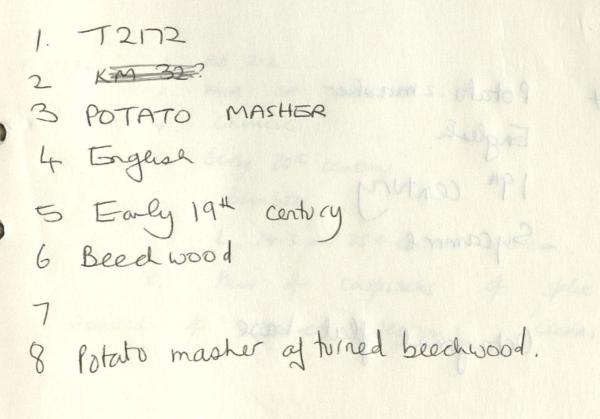 1. T2172
2 KM 32?
3 POTATO MASHER
4 English
5 Early 19th century
6 Beechwood
7
8 Potato masher of turned beechwood.